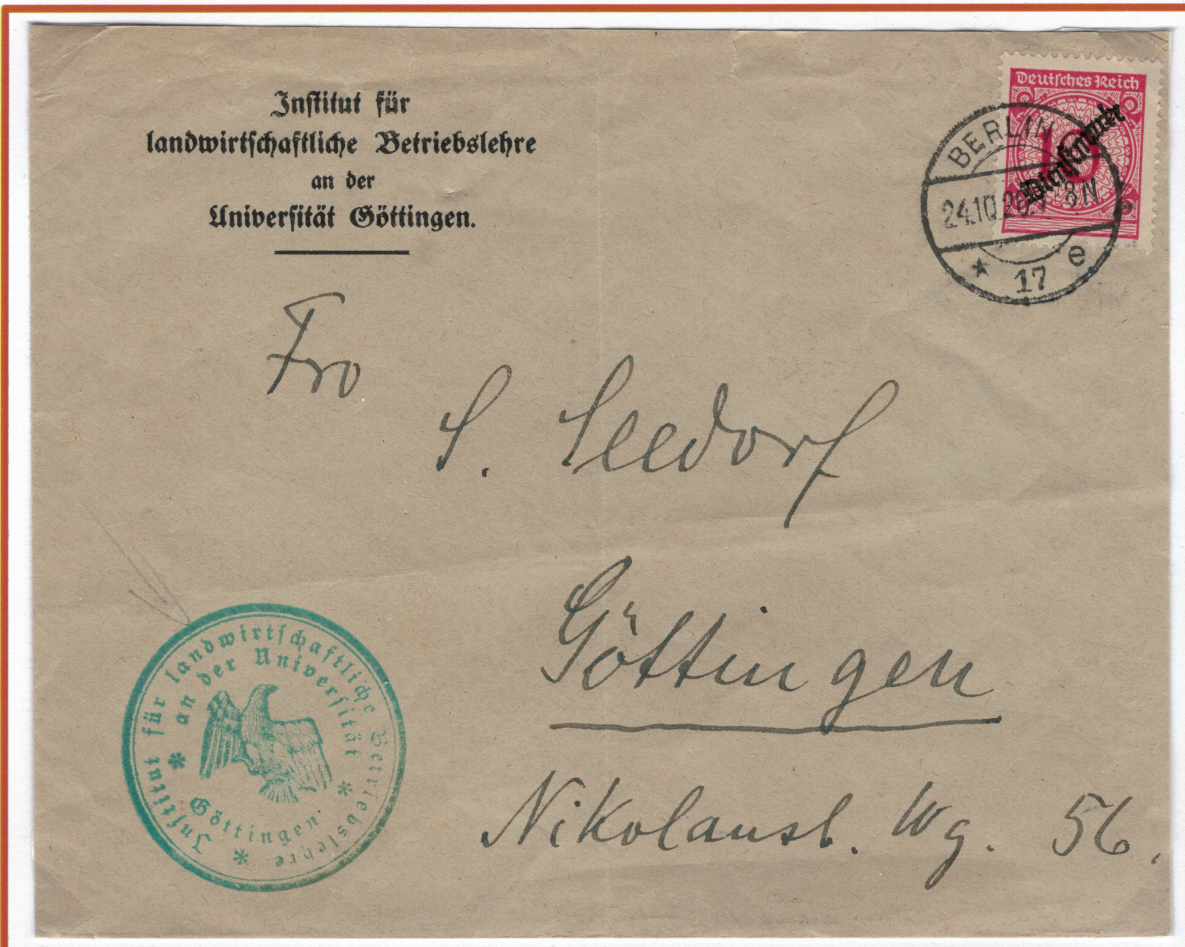 Institut für
landwirtschaftliche Betriebslehre
an der
Universität Göttingen.
Deutsches Reich
10
Dienstmarke
BERLIN
24.10. 8N
* 17 e
Fro
S. Seedorf
Göttingen
Nikolausb. Wg. 56.
Institut für landwirtschaftliche Betriebslehre *
* an der Universität *
Göttingen.